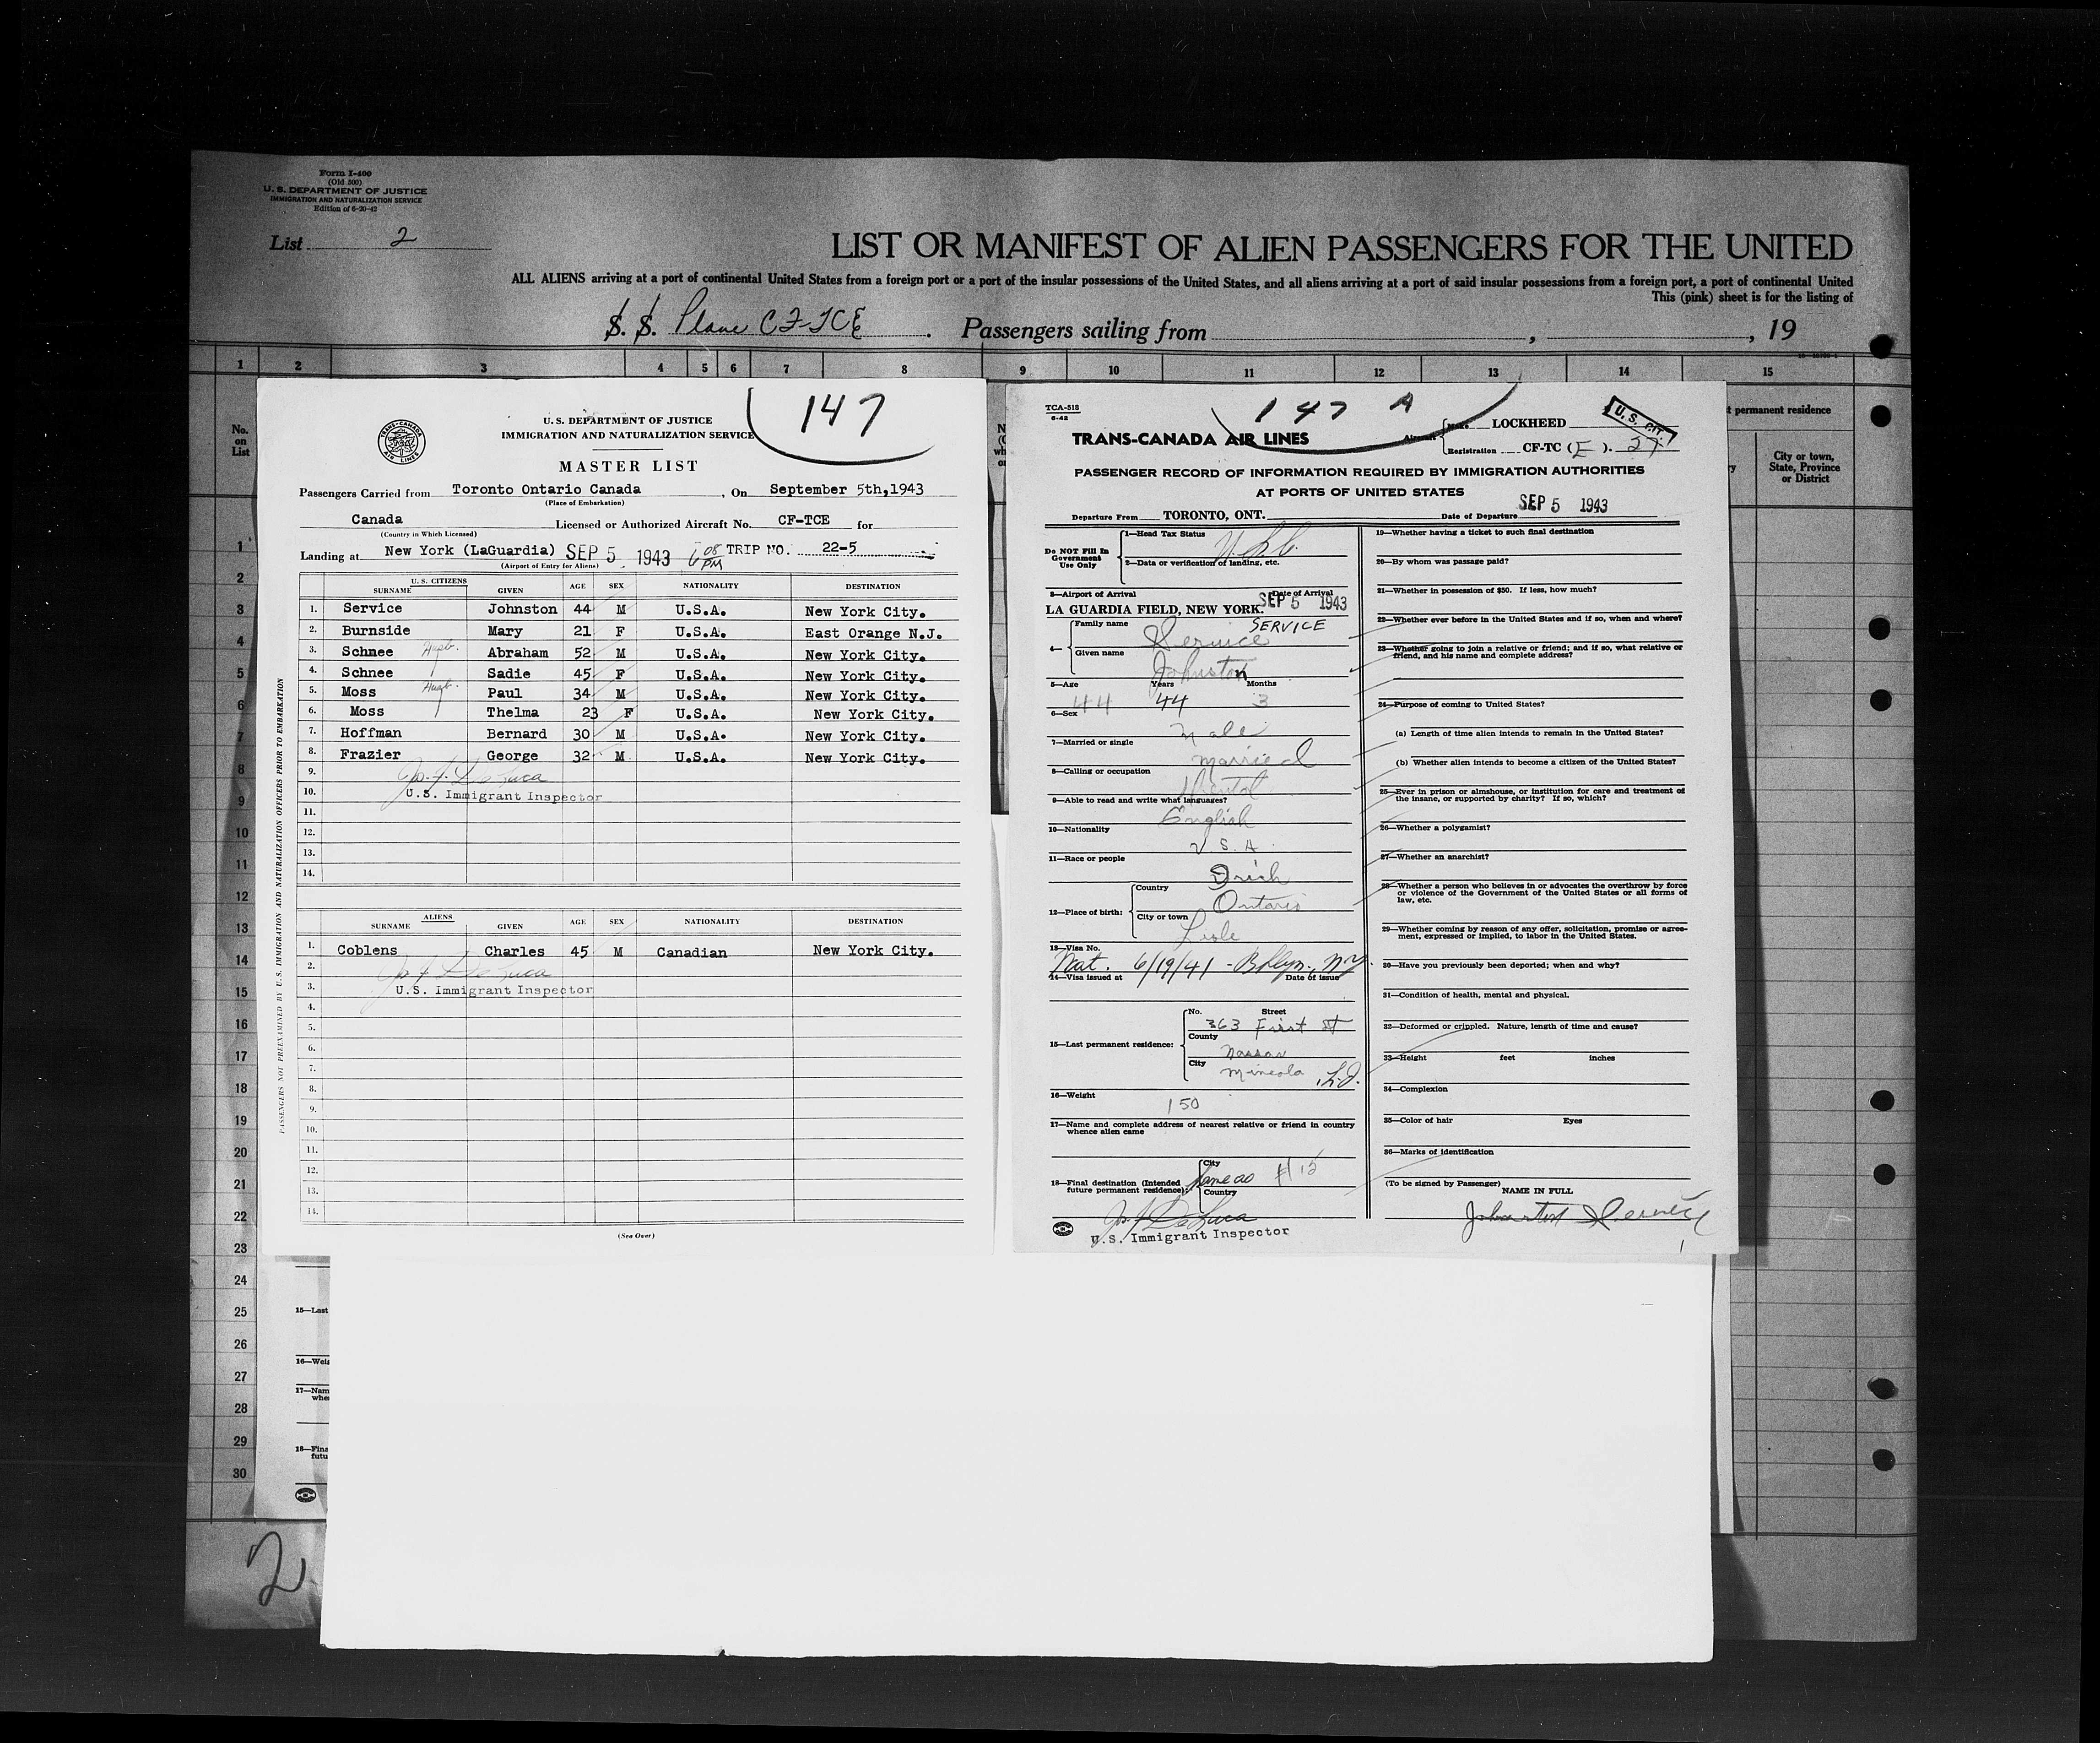 Form I-400
(Old 500)
U. S. DEPARTMENT OF JUSTICE
IMMIGRATION AND NATURALIZATION SERVICE
Edition of 6-20-42
List 2
LIST OR MANIFEST OF ALIEN PASSENGERS FOR THE UNITED
ALL ALIENS arriving at a port of continental United States from a foreign port or a port of the insular possessions of the United States, and all aliens arriving at a port of said insular possessions from a foreign port, a port of continental United
This (pink) sheet is for the listing of
S. S. Plane CF-TCE. Passengers sailing from , , 19
1 2 3 4 5 6 7 8 9 10 11 12 13 14 15
No. on List
t permanent residence
City or town, State, Province or District
1
2
3
4
5
6
7
8
9
10
11
12
13
14
15
16
17
18
19
20
21
22
23
24
25
26
27
28
29
30
15—Last
16—Wei
17—Nam
whe
18—Fina
futu
2
147
TRANS-CANADA AIR LINES
U. S. DEPARTMENT OF JUSTICE
IMMIGRATION AND NATURALIZATION SERVICE
MASTER LIST
Passengers Carried from Toronto Ontario Canada, On September 5th,1943
(Place of Embarkation)
Canada Licensed or Authorized Aircraft No. CF-TCE for
(Country in Which Licensed)
Landing at New York (LaGuardia) SEP 5 1943 6 08 PM TRIP NO. 22-5
(Airport of Entry for Aliens)
PASSENGERS NOT PREEXAMINED BY U.S. IMMIGRATION AND NATURALIZATION OFFICERS PRIOR TO EMBARKATION
U. S. CITIZENS
SURNAME GIVEN AGE SEX NATIONALITY DESTINATION
1. Service Johnston 44 M U.S.A. New York City.
2. Burnside Mary 21 F U.S.A. East Orange N.J.
3. Schnee Abraham 52 M U.S.A. New York City.
4. Schnee Sadie 45 F U.S.A. New York City.
5. Moss Paul 34 M U.S.A. New York City.
6. Moss Thelma 23 F U.S.A. New York City.
7. Hoffman Bernard 30 M U.S.A. New York City.
8. Frazier George 32 M U.S.A. New York City.
9. Jos. F. DeLuca
10. U.S. Immigrant Inspector
11.
12.
13.
14.
ALIENS
SURNAME GIVEN AGE SEX NATIONALITY DESTINATION
1. Coblens Charles 45 M Canadian New York City.
2. Jos. F. DeLuca
3. U.S. Immigrant Inspector
4.
5.
6.
7.
8.
9.
10.
11.
12.
13.
14.
(See Over)
TCA-518
6-42
147 A
TRANS-CANADA AIR LINES
Aircraft Make LOCKHEED
Registration CF-TC (E). 27
U.S. CIT.
PASSENGER RECORD OF INFORMATION REQUIRED BY IMMIGRATION AUTHORITIES
AT PORTS OF UNITED STATES
Departure From TORONTO, ONT. Date of Departure SEP 5 1943
Do NOT Fill In Government Use Only
1—Head Tax Status
2—Data or verification of landing, etc.
3—Airport of Arrival Date of Arrival
LA GUARDIA FIELD, NEW YORK. SEP 5 1943
4— Family name Service SERVICE
Given name Johnston
5—Age Years Months
44 44 3
6—Sex Male
7—Married or single Married
8—Calling or occupation
9—Able to read and write what languages? English
10—Nationality U.S.A.
11—Race or people Irish
12—Place of birth: Country Ontario
City or town Lisle
13—Visa No.
Nat. 6/19/41 - Bklyn., NY
14—Visa issued at Date of issue
15—Last permanent residence: No. Street
363 First St
County Nassau
City Mineola, L.I.
16—Weight 150
17—Name and complete address of nearest relative or friend in country whence alien came
18—Final destination (Intended future permanent residence): City Same as #15
Country
Jos. F. DeLuca
U.S. Immigrant Inspector
19—Whether having a ticket to such final destination
20—By whom was passage paid?
21—Whether in possession of $50. If less, how much?
22—Whether ever before in the United States and if so, when and where?
23—Whether going to join a relative or friend; and if so, what relative or friend, and his name and complete address?
24—Purpose of coming to United States?
(a) Length of time alien intends to remain in the United States?
(b) Whether alien intends to become a citizen of the United States?
25—Ever in prison or almshouse, or institution for care and treatment of the insane, or supported by charity? If so, which?
26—Whether a polygamist?
27—Whether an anarchist?
28—Whether a person who believes in or advocates the overthrow by force or violence of the Government of the United States or all forms of law, etc.
29—Whether coming by reason of any offer, solicitation, promise or agreement, expressed or implied, to labor in the United States.
30—Have you previously been deported; when and why?
31—Condition of health, mental and physical.
32—Deformed or crippled. Nature, length of time and cause?
33—Height feet inches
34—Complexion
35—Color of hair Eyes
36—Marks of identification
(To be signed by Passenger)
NAME IN FULL
Johnston Service
1